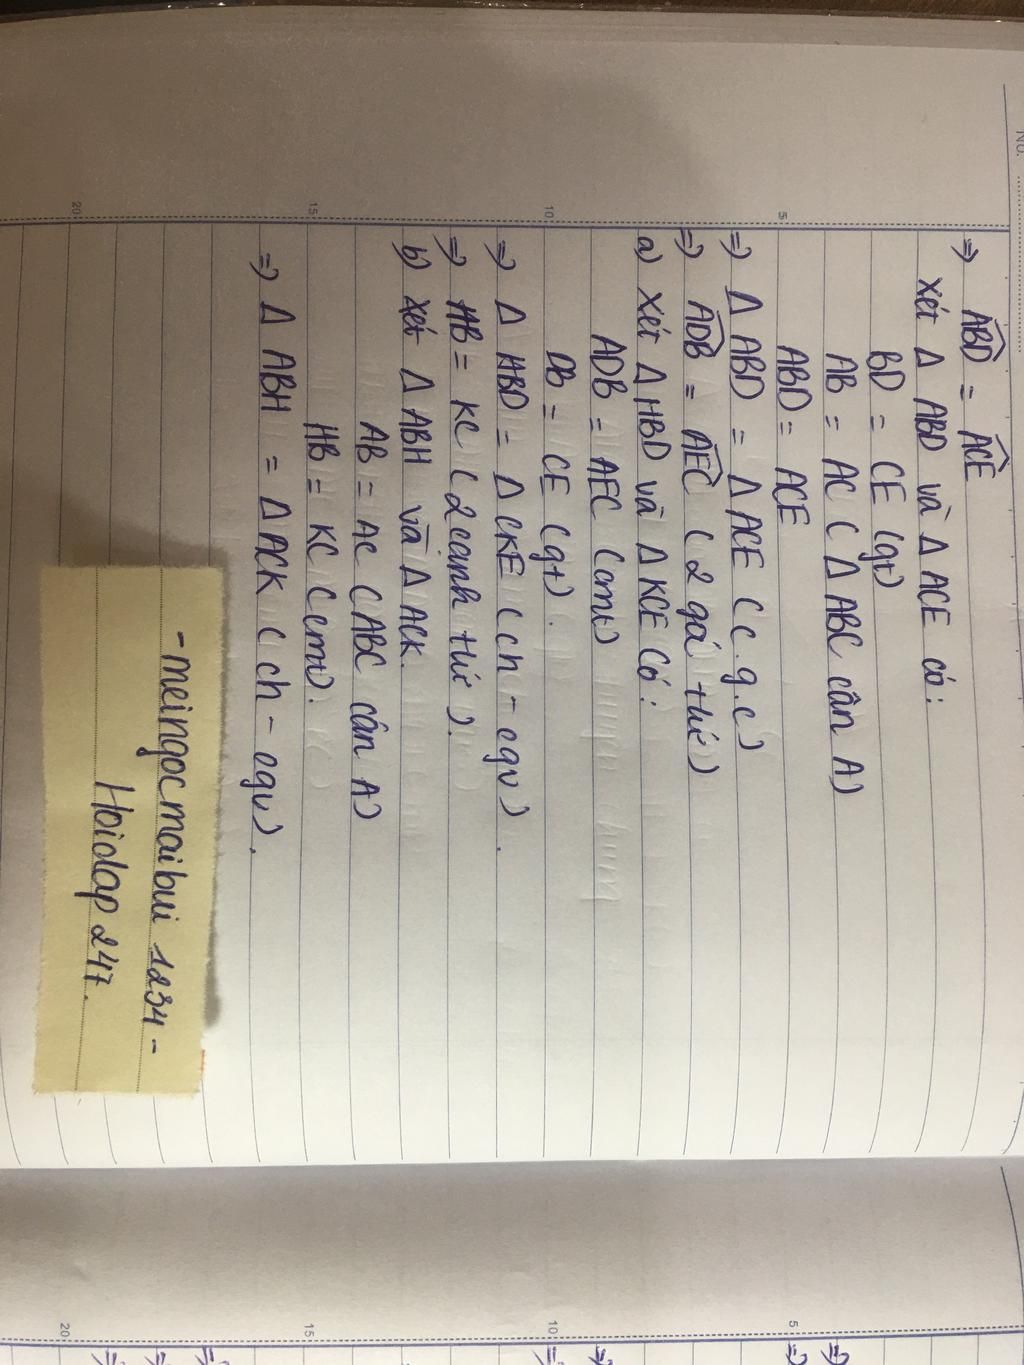 No.
⇒ ABD = ACE
Xét Δ ABD và Δ ACE có:
BD = CE (gt)
AB = AC (Δ ABC cân A)
ABD = ACE
⇒ Δ ABD = Δ ACE (c.g.c)
⇒ ADB = AEC (2 gó tứ)
a) Xét Δ HBD và Δ KCE Có:
ADB = AEC (cmt)
DB = CE (gt).
⇒ Δ HBD = Δ CKE (ch - cgv).
⇒ HB = KC (2 cạnh tứ).
b) Xét Δ ABH và Δ ACK.
AB = AC (ABC cân A)
HB = KC (cmt).
⇒ Δ ABH = Δ ACK (ch - cgv).
- meingocmaibui 1234 -
Hoidap 247.
5
10
15
20
5
10
15
20